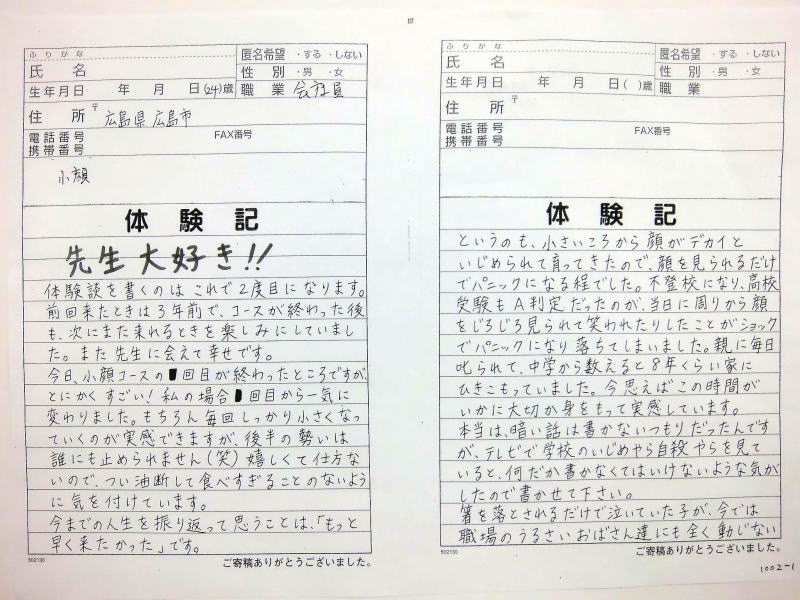 ふりがな
氏 名
匿名希望 ・する ・しない
性 別 ・男 ・女
生年月日 年 月 日(24)歳
職 業 会社員
住 所 〒 広島県広島市
電話番号 FAX番号
携帯番号
小顔
体験記
先生大好き!!
体験談を書くのはこれで2度目になります。
前回来たときは3年前で、コースが終わった後
も、次にまた来れるときを楽しみにしていまし
た。また先生に会えて幸せです。
今日、小顔コースの 回目が終わったところですが、
とにかくすごい!私の場合 回目から一気に
変わりました。もちろん毎回しっかり小さくなっ
ていくのが実感できますが、後半の勢いは
誰にも止められません(笑)嬉しくて仕方な
いので、つい油断して食べすぎることのないよう
に気を付けています。
今までの人生を振り返って思うことは、「もっと
早く来たかった」です。
502130
ご寄稿ありがとうございました。
ふりがな
氏 名
匿名希望 ・する ・しない
性 別 ・男 ・女
生年月日 年 月 日( )歳
職 業
住 所 〒
電話番号 FAX番号
携帯番号
体験記
というのも、小さいころから顔がデカイと
いじめられて育ってきたので、顔を見られるだけ
でパニックになる程でした。不登校になり、高校
受験もA判定だったのが、当日に周りから顔
をじろじろ見られて笑われたりしたことがショック
でパニックになり落ちてしまいました。親に毎日
叱られて、中学から数えると8年くらい家に
ひきこもっていました。今思えばこの時間が
いかに大切か身をもって実感しています。
本当は、暗い話は書かないつもりだったんです
が、テレビで学校のいじめやら自殺やらを見て
いると、何だか書かなくてはいけないような気が
したので書かせて下さい。
箸を落とされるだけで泣いていた子が、今では
職場のうるさいおばさん達にも全く動じない
502130
ご寄稿ありがとうございました。
1002-1